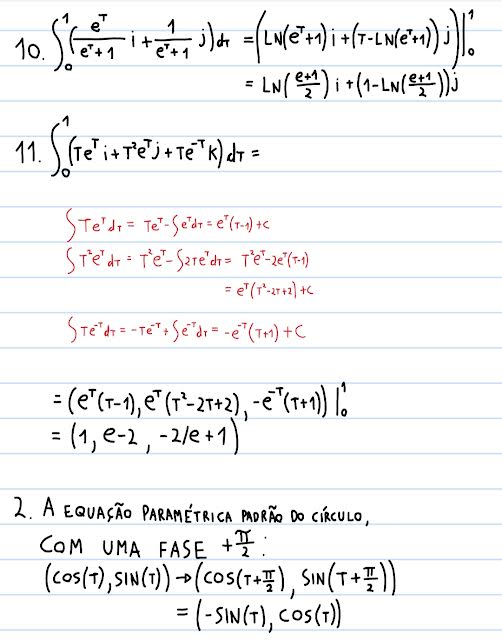 10. ∫₀¹ (eᵀ/(eᵀ+1) i + 1/(eᵀ+1) j) dT = (LN(eᵀ+1) i + (T-LN(eᵀ+1)) j) |₀¹
= LN((e+1)/2) i + (1-LN((e+1)/2)) j
11. ∫₀¹ (Teᵀ i + T²eᵀ j + Te⁻ᵀ K) dT =
∫ Teᵀ dT = Teᵀ - ∫ eᵀ dT = eᵀ(T-1) + C
∫ T²eᵀ dT = T²eᵀ - ∫ 2Teᵀ dT = T²eᵀ - 2eᵀ(T-1)
= eᵀ(T²-2T+2) + C
∫ Te⁻ᵀ dT = -Te⁻ᵀ + ∫ e⁻ᵀ dT = -e⁻ᵀ(T+1) + C
= (eᵀ(T-1), eᵀ(T²-2T+2), -e⁻ᵀ(T+1)) |₀¹
= (1, e-2, -2/e+1)
2. A EQUAÇÃO PARAMÉTRICA PADRÃO DO CÍRCULO,
COM UMA FASE +π/2:
(COS(T), SIN(T)) → (COS(T+π/2), SIN(T+π/2))
= (-SIN(T), COS(T))